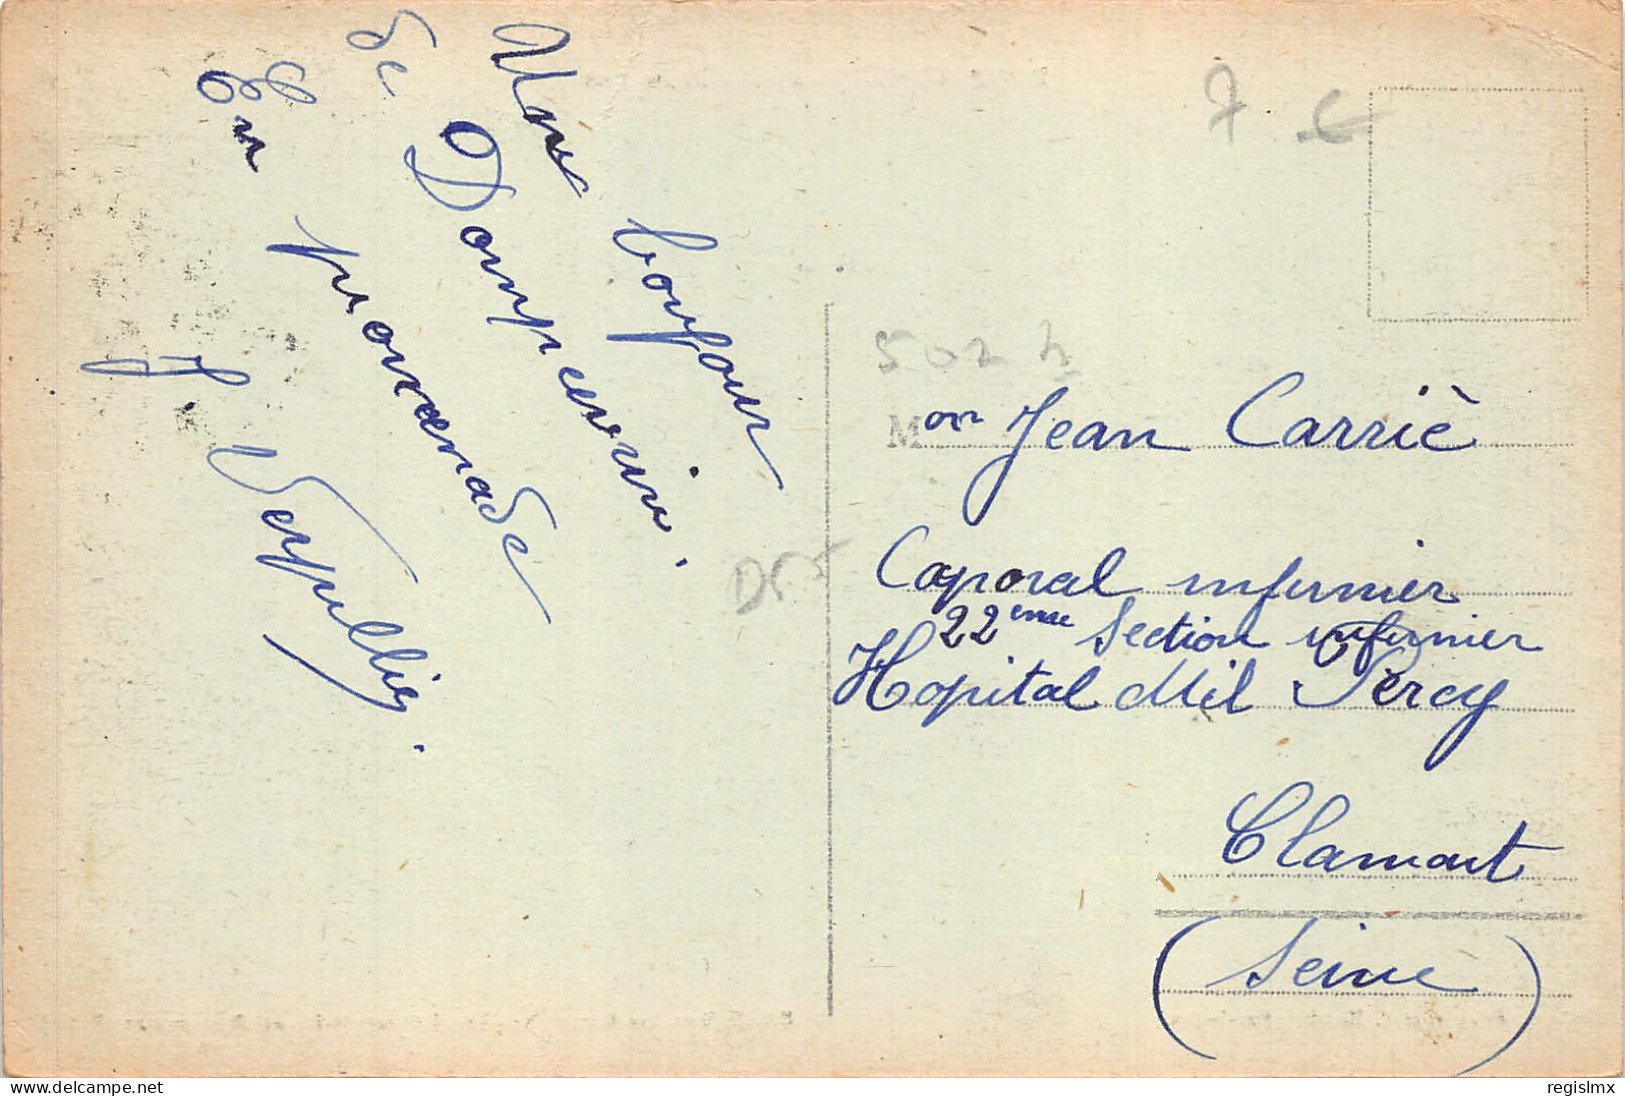 Une bonjour
de Dompierre.
En promenade
J. Verpullie.
7 €
502 h
Mon Jean Carriè
Caporal infirmier
22eme Section infirmier
Hopital Mil Percy
Clamart
(Seine)
www.delcampe.net
regislmx